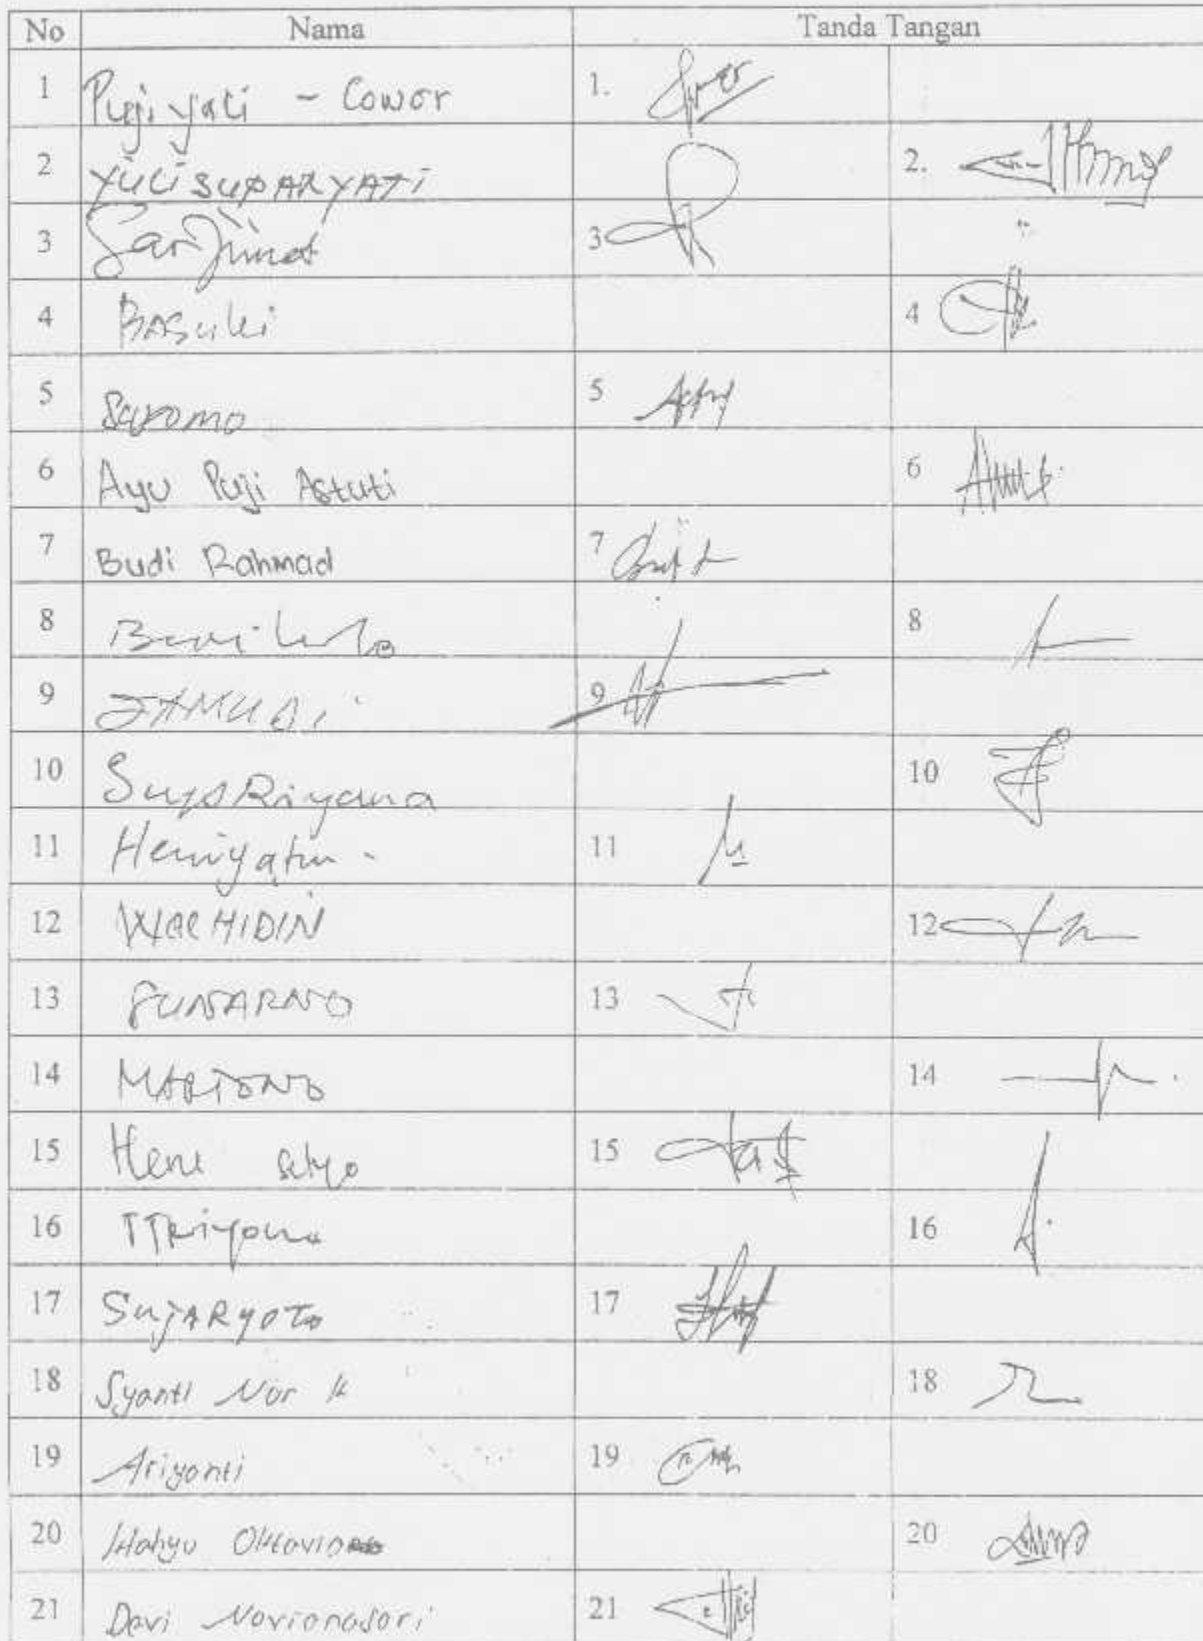 No Nama Tanda Tangan
1 Puji yati - Cowor 1.
2 YULI SUPARYATI 2.
3 Sarjimat 3
4 BASuki 4
5 Saromo 5
6 Ayu Puji Astuti 6
7 Budi Rahmad 7
8 8
9 9
10 10
11 Heniyatun - 11
12 WACHIDIN 12
13 SUNARNO 13
14 MARTONO 14
15 Heni setyo 15
16 TRiyono 16
17 SujARyoTo 17
18 Syanti Nor k 18
19 Ariyanti 19
20 Wahyu Oktavia 20
21 Devi Novianasari 21